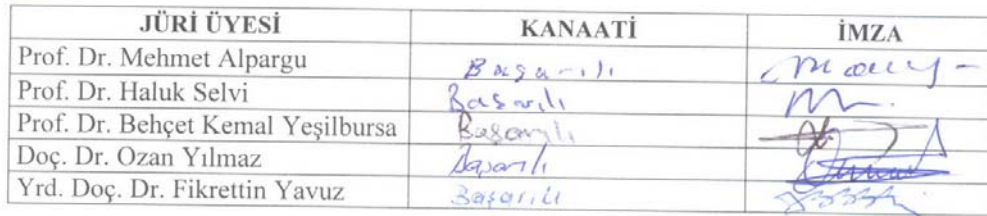 JÜRİ ÜYESİ KANAATİ İMZA
Prof. Dr. Mehmet Alpargu Başarılı
Prof. Dr. Haluk Selvi Başarılı
Prof. Dr. Behçet Kemal Yeşilbursa Başarılı
Doç. Dr. Ozan Yılmaz Başarılı
Yrd. Doç. Dr. Fikrettin Yavuz Başarılı